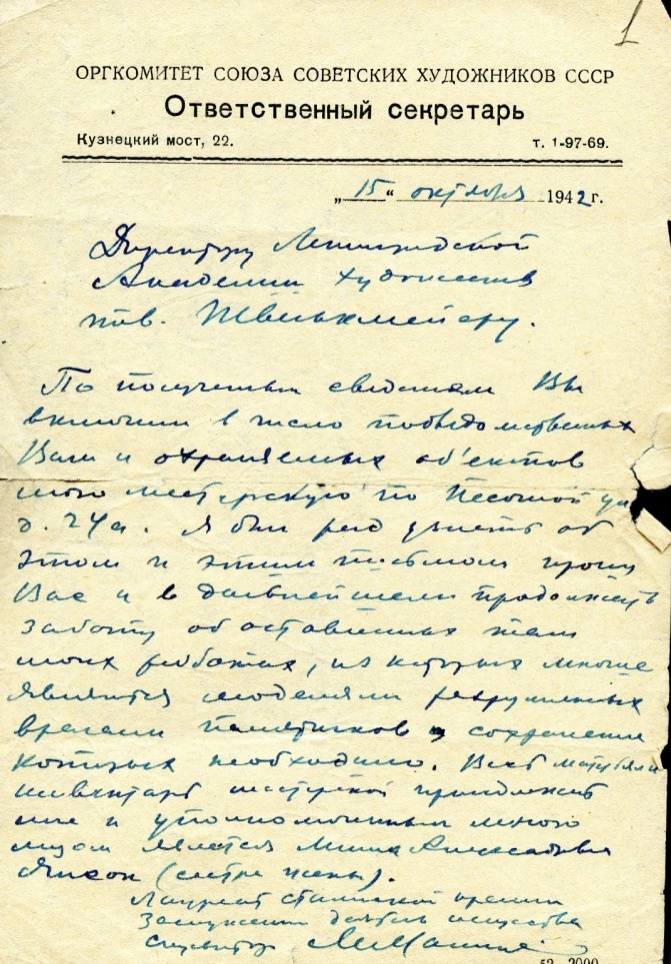 1
ОРГКОМИТЕТ СОЮЗА СОВЕТСКИХ ХУДОЖНИКОВ СССР
Ответственный секретарь
Кузнецкий мост, 22. т. 1-97-69.
„15“ октября 1942 г.
Директору Ленинградской
Академии художеств
тов.
По полученным сведениям Вы
включили в число подведомственных
Вам и охраняемых об'ектов
мою мастерскую по Песочной ул
д. 24а. Я был рад узнать об
этом и этим письмом прошу
Вас и в дальнейшем продолжать
заботу об оставленных там
моих работах, из которых многие
являются моделями разрушенных
врагами памятников и сохранение
которых необходимо. Весь материал и
инвентарь мастерской принадлежит
мне и уполномоченным мною
лицом является
(сестра жены).
Лауреат сталинской премии
Заслуженный деятель искусства
скульптор
53 2000